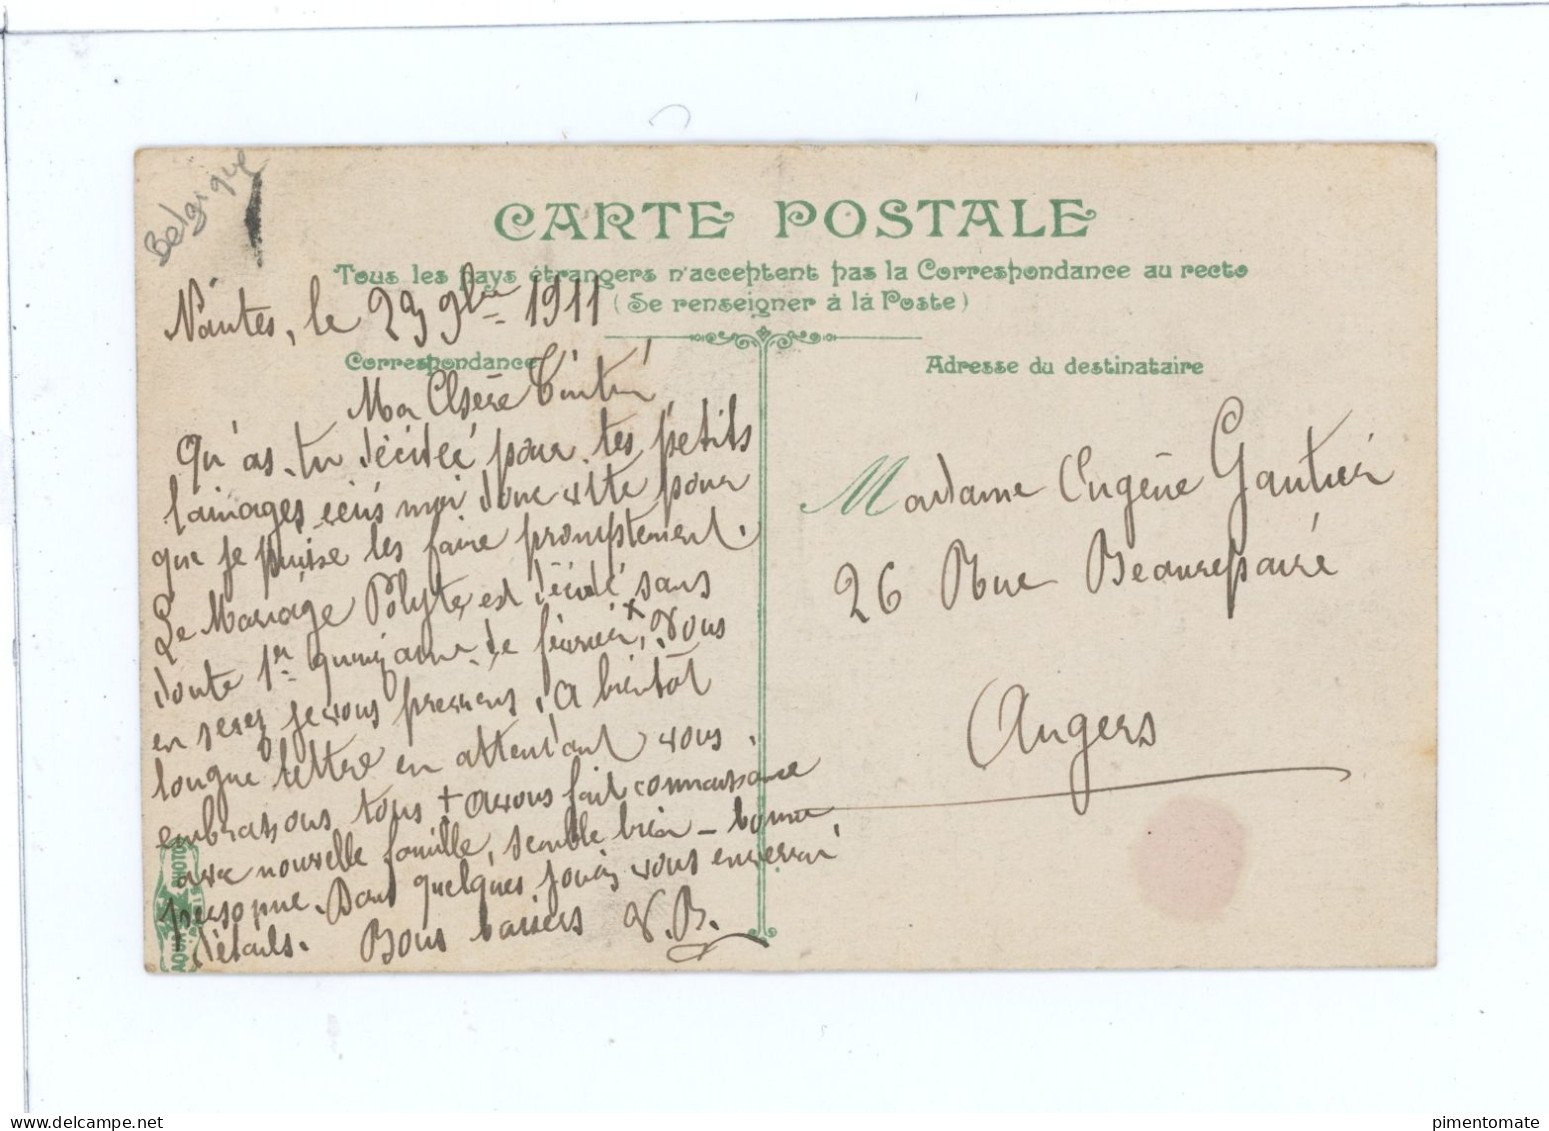 Belgique
CARTE POSTALE
Tous les pays étrangers n'acceptent pas la Correspondance au recto
(Se renseigner à la Poste)
Nantes, le 29 9bre 1911
Correspondance
Adresse du destinataire
Ma Chère
Qu'as-tu décidée pour tes petits
lainages, écris moi donc vite pour
que je puisse les faire promptement.
Le Mariage Polyte, est décidé sans
doute 1r quinzaine de février x, Vous
en serez je vous préviens, A bientôt
longue lettre en attendant vous
embrassons tous + avons fait connaissance
avec nouvelle famille, semble bien - bonne
personne. Dans quelques jours vous enverrai
détails. Bons baisers V.B.
Madame Eugène Gautier
26 Rue Beaurepaire
Angers
www.delcampe.net
pimentomate